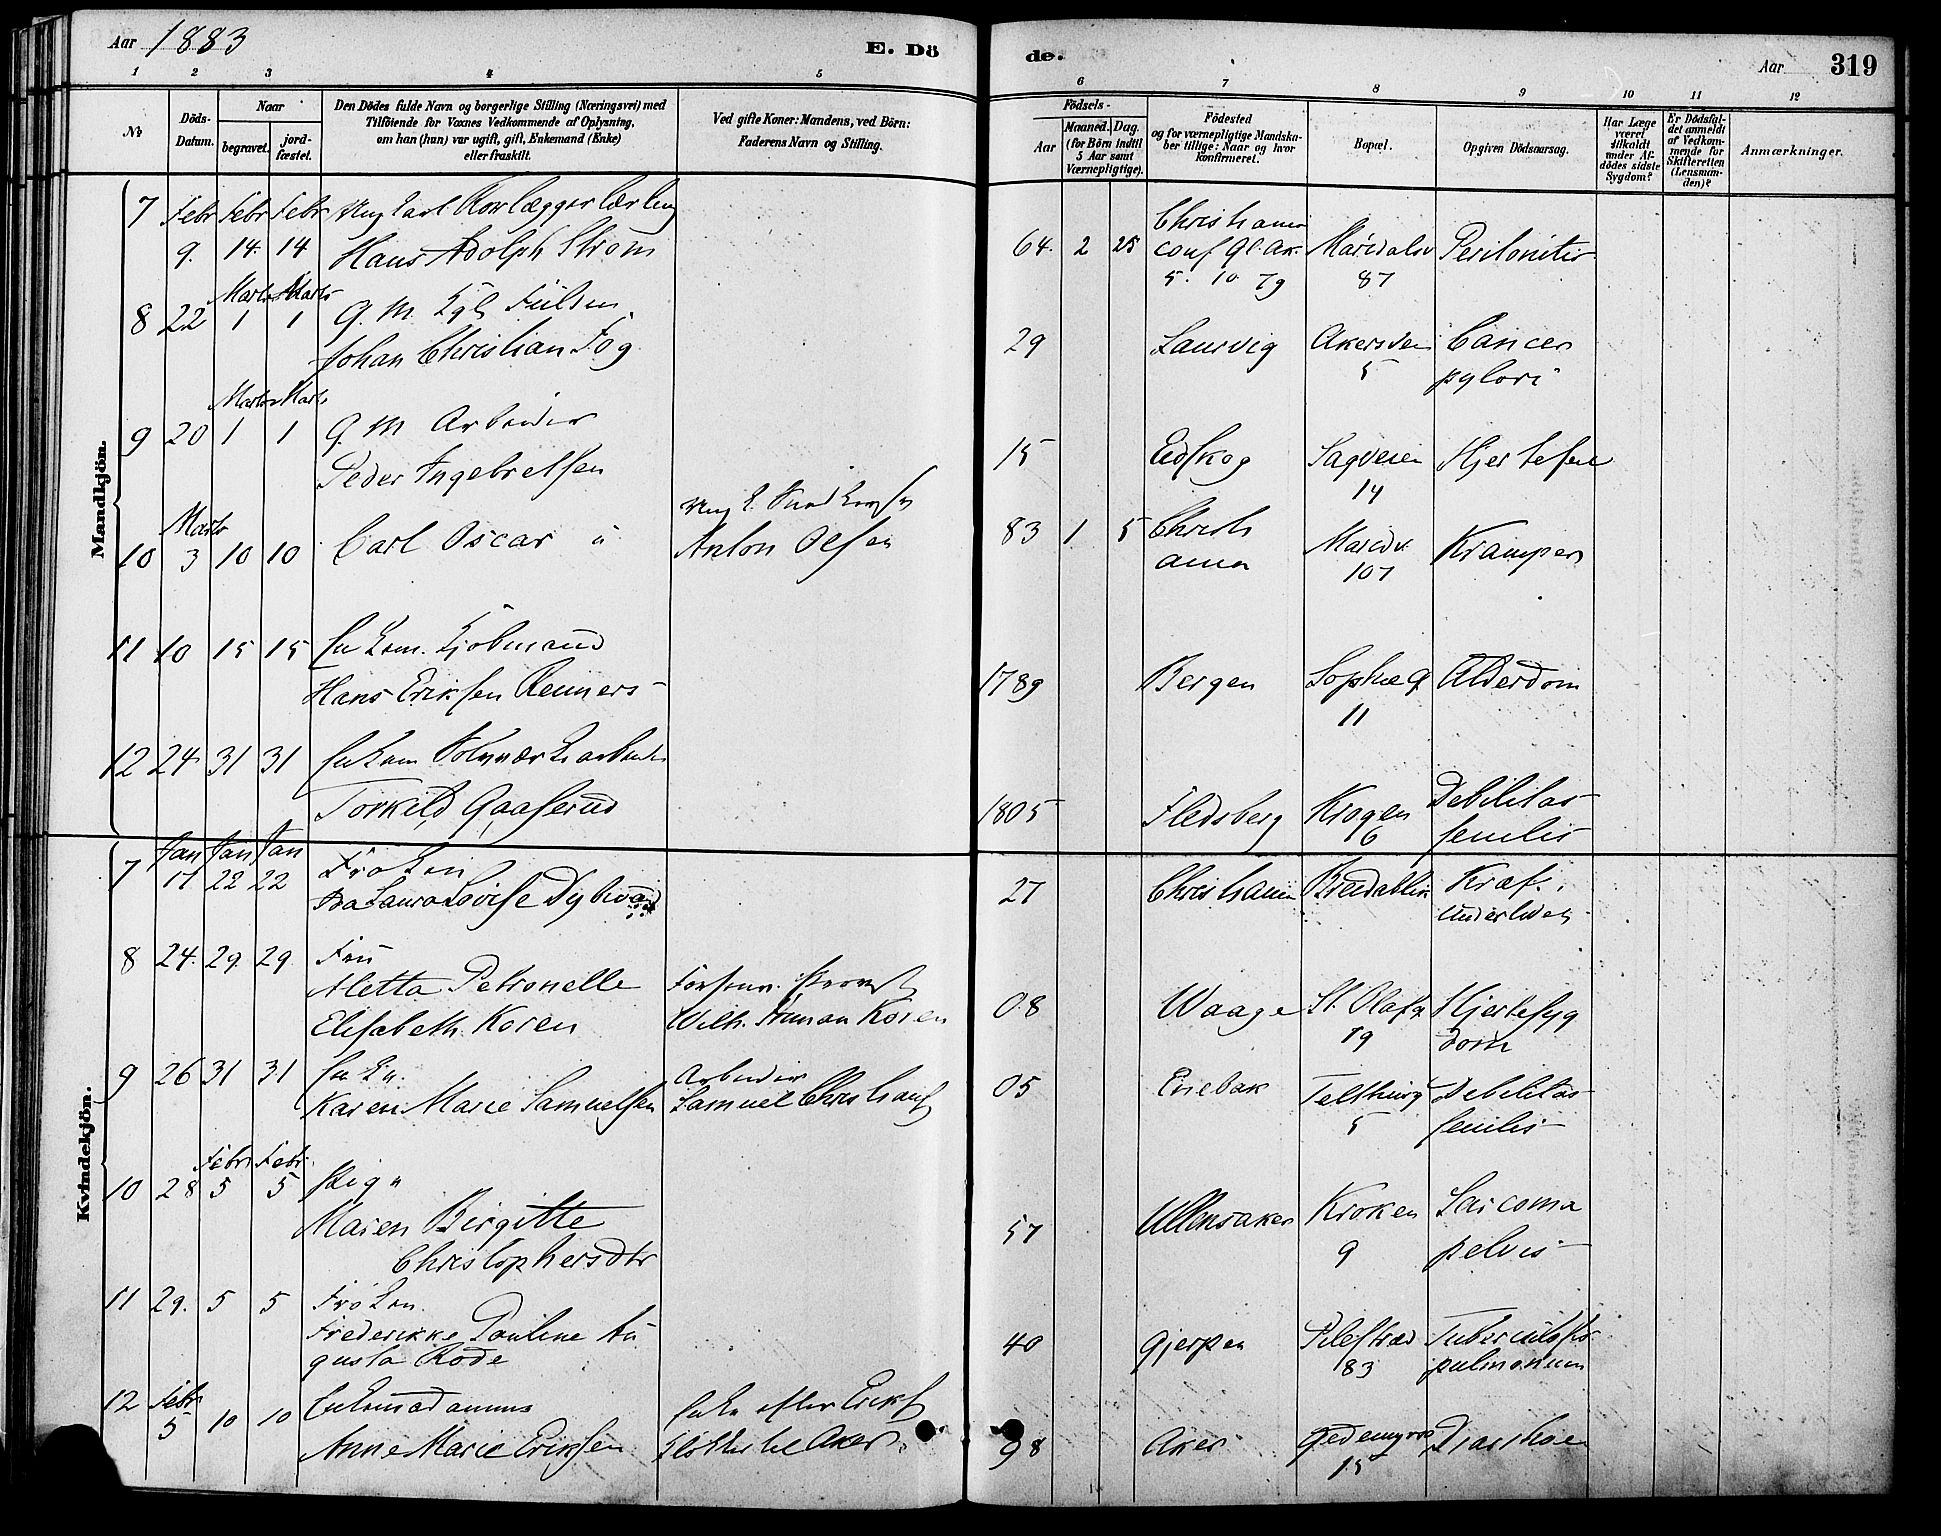 Aar 1883 E. Dö
1 2 3 4 5
No
Döds-Datum.
Naar
begravet.
jord-fæstet.
Den Dödes fulde Navn og borgerlige Stilling (Næringsvei) med
Tilföiende for Voxnes Vedkommende af Oplysning,
om han (hun) var ugift, gift, Enkemand (Enke)
eller fraskilt.
Ved gifte Koner: Mandens, ved Börn:
Faderens Navn og Stilling.
Mandkjön.
7 Febr Febr Febr
9. 14. 14 Hans Adolph Strøm
Marts Marts
8 22 1 1 G. M.
Johan Christian Fog
Marts Marts
9 20 1 1 G. M Arbeider
Peder Ingebretsen
Marts
10 3 10 10 Carl Oscar Anton Olsen
11 10 15 15 Kjöbmand
Hans Eriksen Renners
12 24 31 31
Torkild Gaaserud
Kvindekjön.
Jan Jan Jan
7 17 22 22 Frøken
Laura Lovise Dybwad
8 24. 29. 29 Fru
Aletta Petronelle
Elisabeth Koren Wilh. Koren
9 26 31 31 Arbeider
Karen Marie Samuelsen Samuel Christians
Febr Febr
10 28 5 5 Pige
Maren Birgitte
Christophersdtr
11 29. 5 5 Frøken
Frederikke Pauline Au
gusta Rode
Febr
12 5 10 10
Anne Marie Eriksen
de. Aar 319
6 7 8 9 10 11 12
Födsels-
Aar
Maaned. Dag.
(for Börn indtil
5 Aar samt
Værnepligtige).
Födested
og for værnepligtige Mandska-
ber tillige: Naar og hvor
konfirmeret.
Bopæl.
Opgiven Dödsaarsag.
Har Læge
været
tilkaldt
under Af-
dödes sidste
Sygdom?
Er Dödsfal-
det anmeldt
af Vedkom-
mende for
Skifteretten
(Lensman-
den)?
Anmærkninger.
Christiania
64. 2 25 conf Gl. Ak. Maridalsv Peritonitis
5. 10 79 87
29 Laurvig Akersvei Cancer
5 pylori
15 Eidskog Sagveien Hjertefeil
14
83 1 5 Christi
ania Maridv Kramper
107
1789 Bergen Sophie G Alderdom
11
1805 Flesberg Krogen Debilitas
6 senilis
27 Christiania Bredablik Kræft i
Underlivet
08 Waage St. Olafsg Hjertesyg
19 dom
05 Enebak Telthusg Debilitas
5 senilis
57 Ullensaker Kroken Sarcoma
9 pelvis
40 Gjerpen Pilestræd Tuberculosis
83 pulmonum
98 Aker Gedemyrs Diarrhoe
15